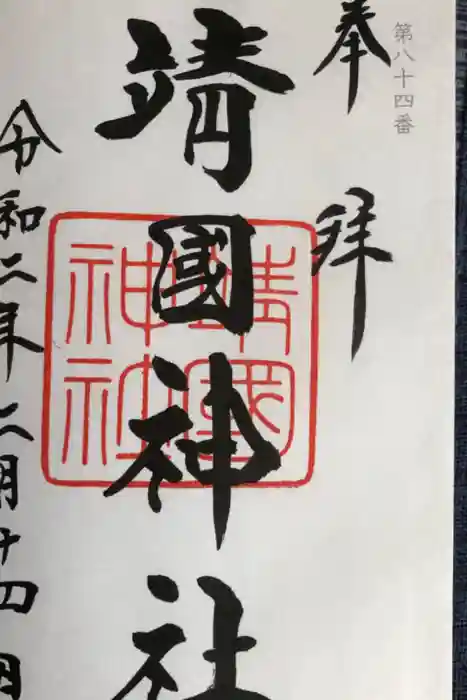 第八十四番
奉拝
靖國神社
靖國神社
令和二年二月十四日